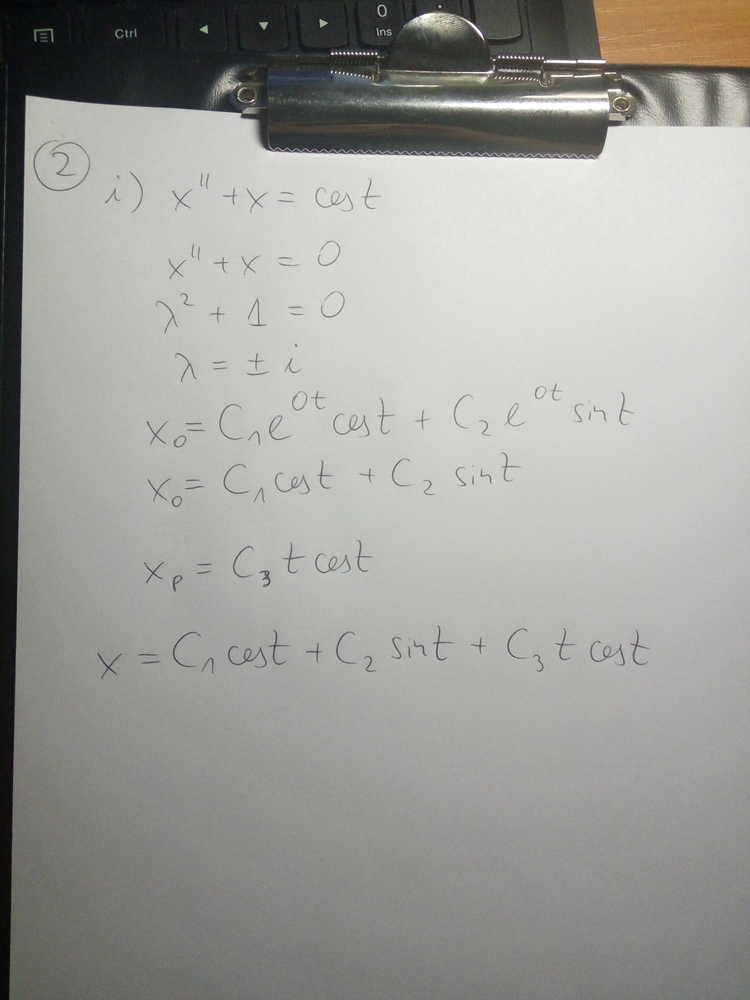 Ctrl
0
Ins
2
i) x'' + x = cost
x'' + x = 0
λ² + 1 = 0
λ = ± i
x₀ = C₁e⁰ᵗ cost + C₂ e⁰ᵗ sint
x₀ = C₁ cost + C₂ sint
xₚ = C₃ t cost
x = C₁ cost + C₂ sint + C₃ t cost